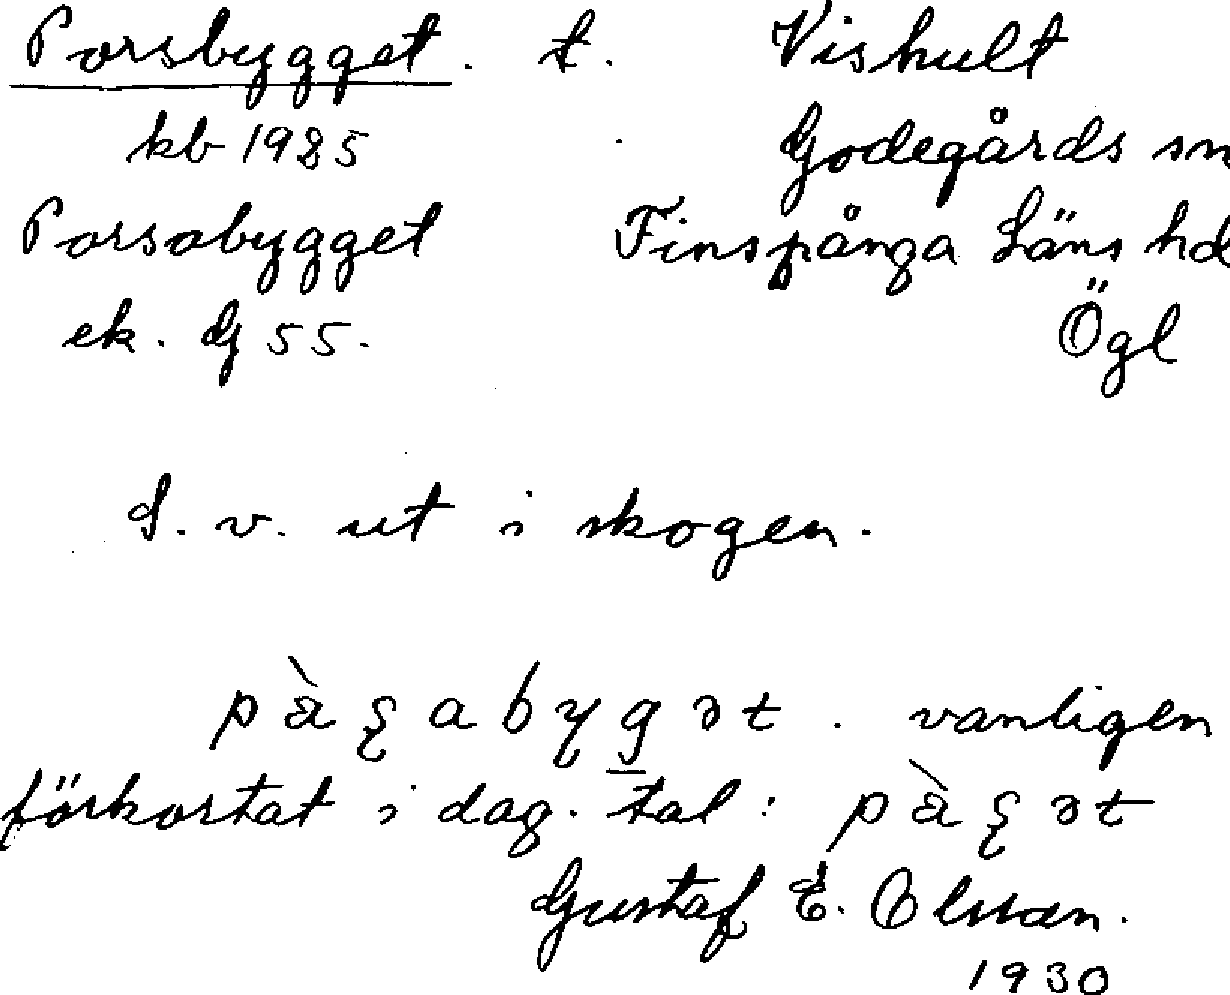 Porsbygget. t. Vishult
kb 1925 Godegårds sn
Porsabygget Finspånga Läns hd
ek. G 55. Ögl
S. v. ut i skogen.
pàʂabygət. vanligen
förkortat i dag. tal: pàʂət
Gustaf E. Olsson.
1930